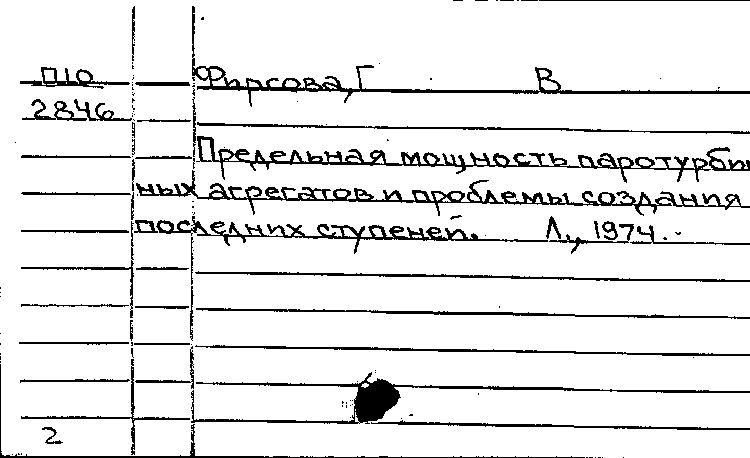 П10
2846
Фирсова, Г В
Предельная мощность паротурбин
ных агрегатов и проблемы создания
последних ступеней. Л., 1974.
2